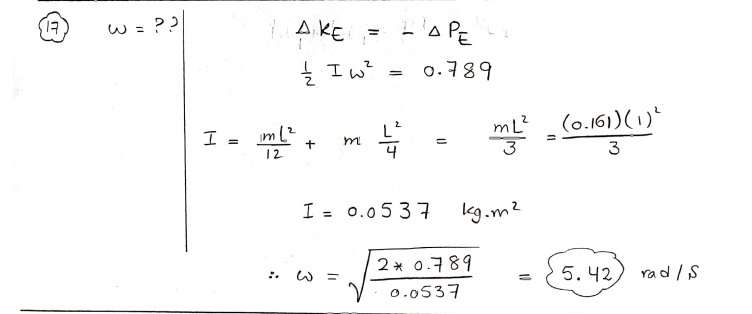 17 ω = ?? Δ KE = - Δ PE
1/2 I ω² = 0.789
I = mL²/12 + m L²/4 = mL²/3 = (0.161)(1)²/3
I = 0.0537 kg.m²
∴ ω = √(2 * 0.789 / 0.0537) = 5.42 rad/s